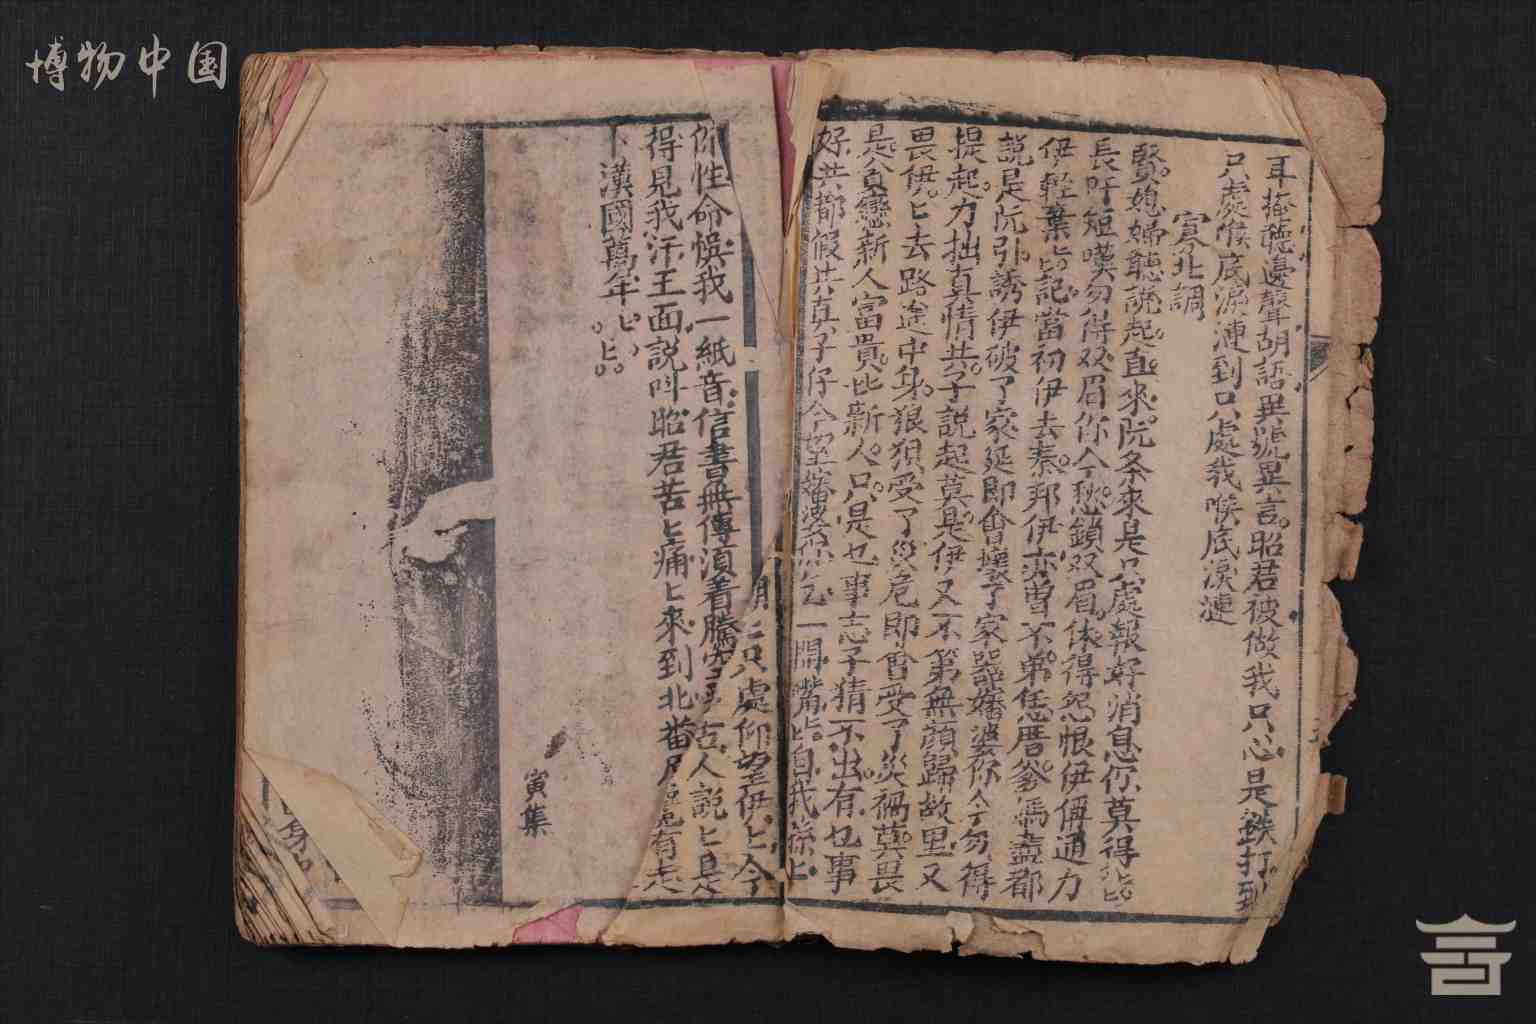 博物中国
耳擡聽邊聲胡語異號異言。昭君被做我只心是鉄打到
只處喉底淚漣到只處我喉底淚漣
寡北調
賢媳婦聽説起直來。阮条來是只處報好消息你莫得
長吁短嘆勿得双眉你今愁鎖双眉。体得怨恨伊偶通力
伊輕葉記當初伊去秦邦伊亦曽不弟恁厝爹爲盡都
説是阮引誘伊破了家延即會壞了家噐婆你今勿得
提起力拙真情共子説起莫是伊又不第無顔歸故里又
畏伊去路途中身狼狽受了災危即會受了災禍莫畏
是貪戀新人富貴比新人。只是乜事志子猜不出有乜事
好共都假共真子仔今望婆你乞一開嘴自我孫
胡只處仰望伊今
你性命悞我一紙音信書無傳湏着騰空古人説是
得見我汗王面説叫昭君苦痛來到北番有走
漢國萬年
寅集